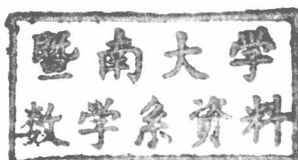 暨南大学
数学系资料